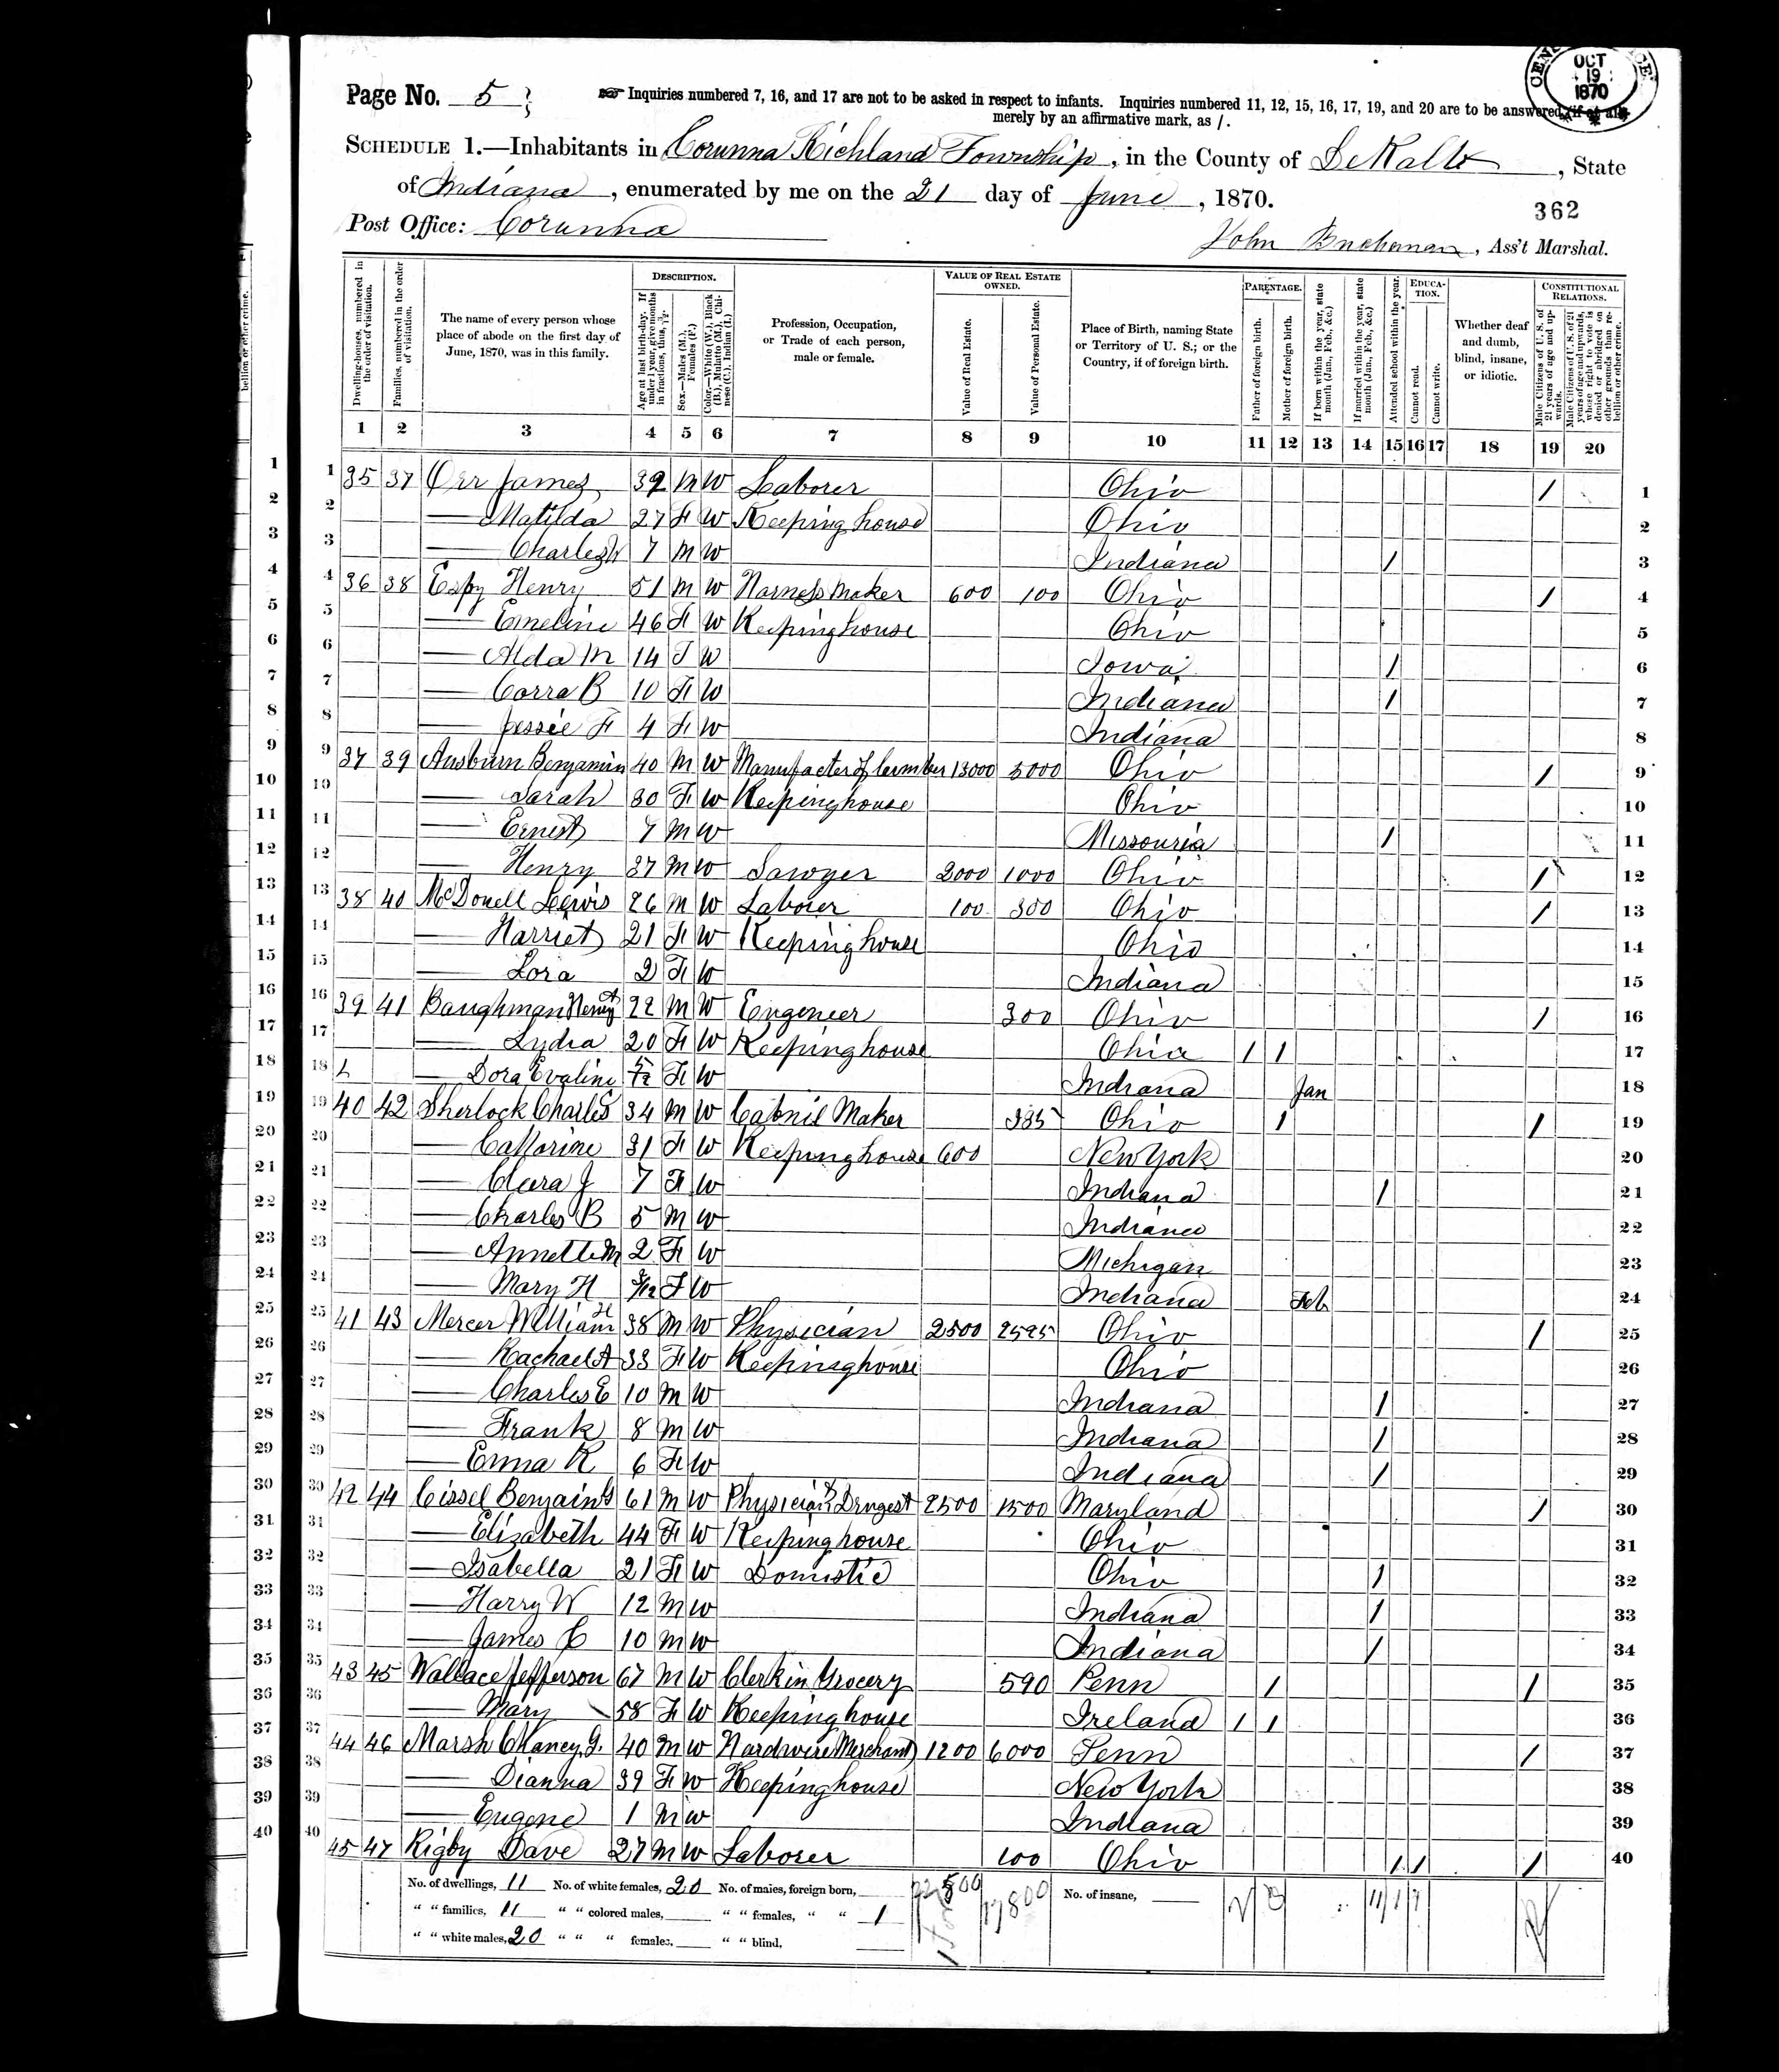 Page No. 5
☞ Inquiries numbered 7, 16, and 17 are not to be asked in respect to infants. Inquiries numbered 11, 12, 15, 16, 17, 19, and 20 are to be answered (if at all)
merely by an affirmative mark, as /.
OCT
19
1870
SCHEDULE 1.—Inhabitants in Corunna Richland Township, in the County of DeKalb, State
of Indiana, enumerated by me on the 21 day of June, 1870.
362
Post Office: Corunna
John Buchanan, Ass't Marshal.
Dwelling-houses, numbered in the order of visitation.
Families, numbered in the order of visitation.
The name of every person whose place of abode on the first day of June, 1870, was in this family.
DESCRIPTION.
Age at last birth-day. If under 1 year, give months in fractions, thus, 3/12.
Sex.—Males (M.), Females (F.)
Color.—White (W.), Black (B.), Mulatto (M.), Chinese (C.), Indian (I.)
Profession, Occupation, or Trade of each person, male or female.
VALUE OF REAL ESTATE OWNED.
Value of Real Estate.
Value of Personal Estate.
Place of Birth, naming State or Territory of U. S.; or the Country, if of foreign birth.
PARENTAGE.
Father of foreign birth.
Mother of foreign birth.
If born within the year, state month (Jan., Feb., &c.)
If married within the year, state month (Jan., Feb., &c.)
Attended school within the year.
EDUCATION.
Cannot read.
Cannot write.
Whether deaf and dumb, blind, insane, or idiotic.
CONSTITUTIONAL RELATIONS.
Male Citizens of U. S. of 21 years of age and upwards.
Male Citizens of U. S. of 21 years of age and upwards, whose right to vote is denied or abridged on other grounds than rebellion or other crime.
1 2 3 4 5 6 7 8 9 10 11 12 13 14 15 16 17 18 19 20
1 35 37 Orr James 39 M W Laborer Ohio / 1
2 — Matilda 27 F W Keeping house Ohio 2
3 — Charles W 7 M W Indiana / 3
4 36 38 Espy Henry 51 M W Harness Maker 600 100 Ohio / 4
5 — Emeline 46 F W Keeping house Ohio 5
6 — Alda M 14 F W Iowa / 6
7 — Corra B 10 F W Indiana / 7
8 — Jessie F 4 F W Indiana 8
9 37 39 Ausburn Benjamin 40 M W Manufacter of lumber 13000 5000 Ohio / 9
10 — Sarah 30 F W Keeping house Ohio 10
11 — Ernest 7 M W Missouria / 11
12 — Henry 37 M W Sawyer 2000 1000 Ohio / 12
13 38 40 McDonell Lewis 26 M W Laborer 100 300 Ohio / 13
14 — Harriet 21 F W Keeping house Ohio 14
15 — Lora 2 F W Indiana 15
16 39 41 Baughman Henry 22 M W Engeneer 300 Ohio / 16
17 — Lydia 20 F W Keeping house Ohio / / 17
18 — Dora Evaline 5/12 F W Indiana Jan 18
19 40 42 Sherlock Charles 34 M W Cabnit Maker 385 Ohio / / 19
20 — Catharine 31 F W Keeping house 600 New York 20
21 — Clara J 7 F W Indiana / 21
22 — Charles B 5 M W Indiana 22
23 — Annette M 2 F W Michigan 23
24 — Mary H 3/12 F W Indiana Feb 24
25 41 43 Mercer William H 38 M W Physician 2500 2525 Ohio / 25
26 — Rachael A 33 F W Keeping house Ohio 26
27 — Charles E 10 M W Indiana / 27
28 — Frank 8 M W Indiana / 28
29 — Emma R 6 F W Indiana / 29
30 42 44 Cissel Benjain 61 M W Physician & Drugest 2500 1500 Maryland / 30
31 — Elizabeth 44 F W Keeping house Ohio 31
32 — Isabella 21 F W Domistic Ohio / 32
33 — Harry W 12 M W Indiana / 33
34 — James C 10 M W Indiana / 34
35 43 45 Wallace Jefferson 67 M W Clerk in Grocery 590 Penn / / 35
36 — Mary 58 F W Keeping house Ireland / / 36
37 44 46 Marsh Chaney G. 40 M W Hardwire Merchant 1200 6000 Penn / 37
38 — Dianna 39 F W Keeping house New York 38
39 — Eugene 1 M W Indiana 39
40 45 47 Rigby Dave 27 M W Laborer 100 Ohio / / / 40
No. of dwellings, 11 No. of white females, 20 No. of males, foreign born, No. of insane,
" " families, 11 " " colored males, " " females, " " 1
" " white males, 20 " " " females, " " blind,
22500
17800